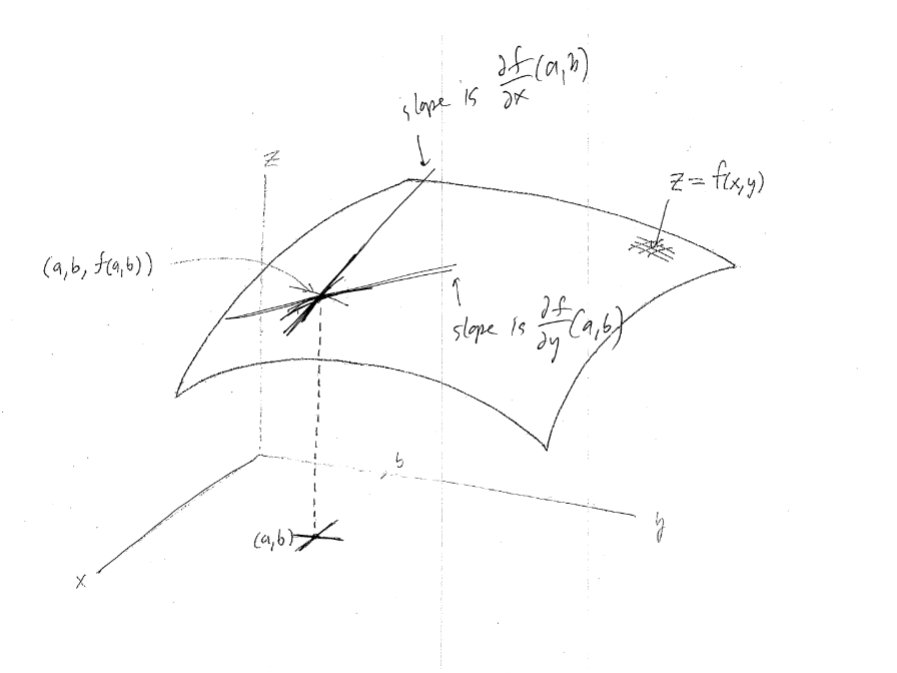 slope is ∂f/∂x (a,b)
z
z = f(x,y)
(a,b, f(a,b))
slope is ∂f/∂y (a,b)
b
y
(a,b)
x